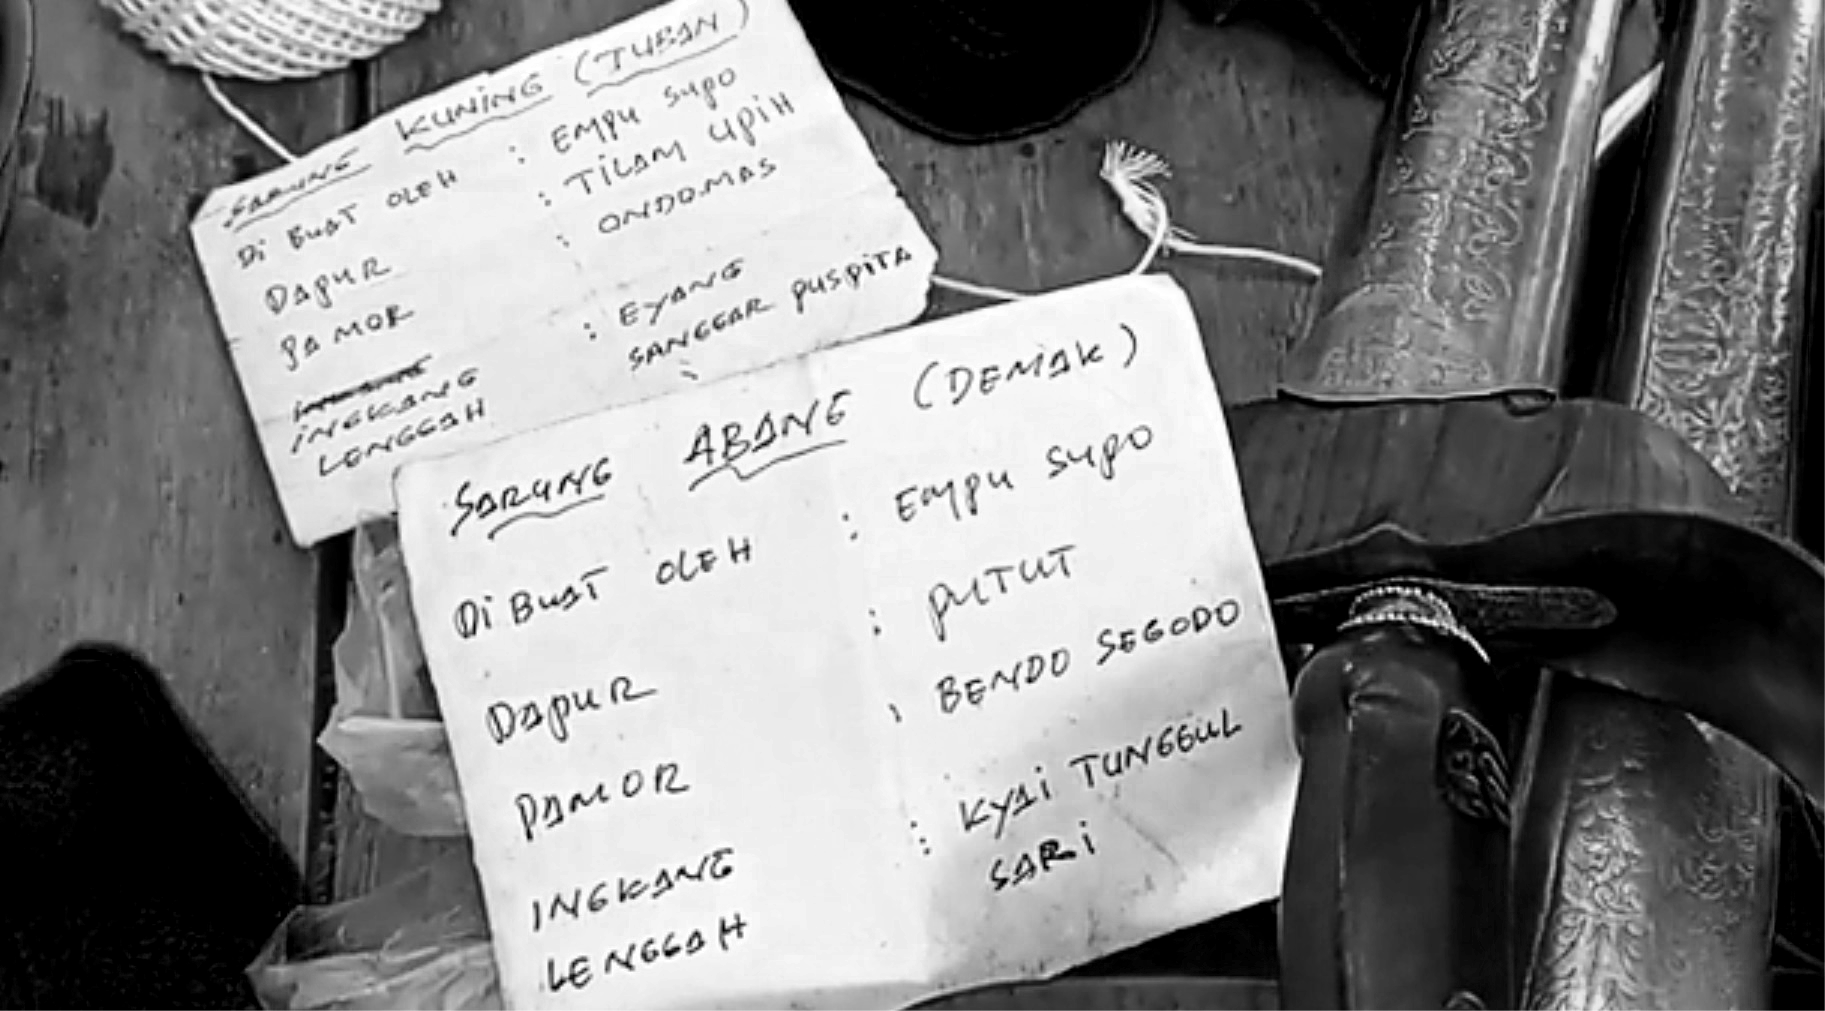 SARUNG KUNING (TUBAN)
Di BUAT OLEH : EMPU SUPO
DAPUR : TiLAM UPiH
PAMOR : ONDOMAS
iNGKANG : EYANG
LENGGAH SANGGAR PUSPiTA
SARUNG ABANG (DEMAK)
Di BUAT OLEH : EMPU SUPO
DAPUR : PUTUT
PAMOR : BENDO SEGODO
INGKANG : KYAi TUNGGUL
LENGGAH SARi